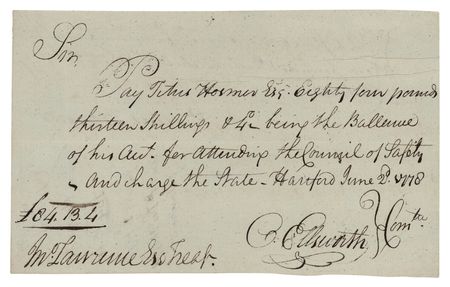 Sir,
Pay Titus Hosmer Esqr. Eighty four pounds
thirteen Shillings & 4d. being the Ballence
of his Acct. for Attending the Council of Safety
- And charge the State - Hartford June 2d. 1778
£84.13.4
O. Ellsworth, } Comtte
Jno. Lawrence Esq Treasr.